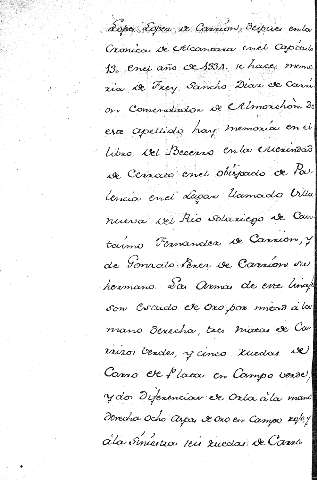 Lopez, Lopez de Carrión, despues en la
Cronica de Alcantara en el Capitulo
13, en el año de 1331, se hace memo
ria de Frey Sancho Diaz de Carri
on Comendador de Almorchòn. De
ese apellido hay memoria en el
libro del Becerro en la Merindad
de Cerrato en el obispado de Pa
lencia en el Lugar llamado Villa
nueva del Rio Solariego de
Fernandez de Carrion, y
de Gonzalo Perez de Carrión su
hermano. Las Armas de este linage
son escudo de oro, por medio à la
mano derecha, tres matas de Ca
rrizos verdes, y cinco ruedas de
Carro de Plata en Campo verde,
y dos diferencias de orla à la mano
derecha ocho Aspas de oro en Campo rojo, y
à la siniestra seis ruedas de Carro